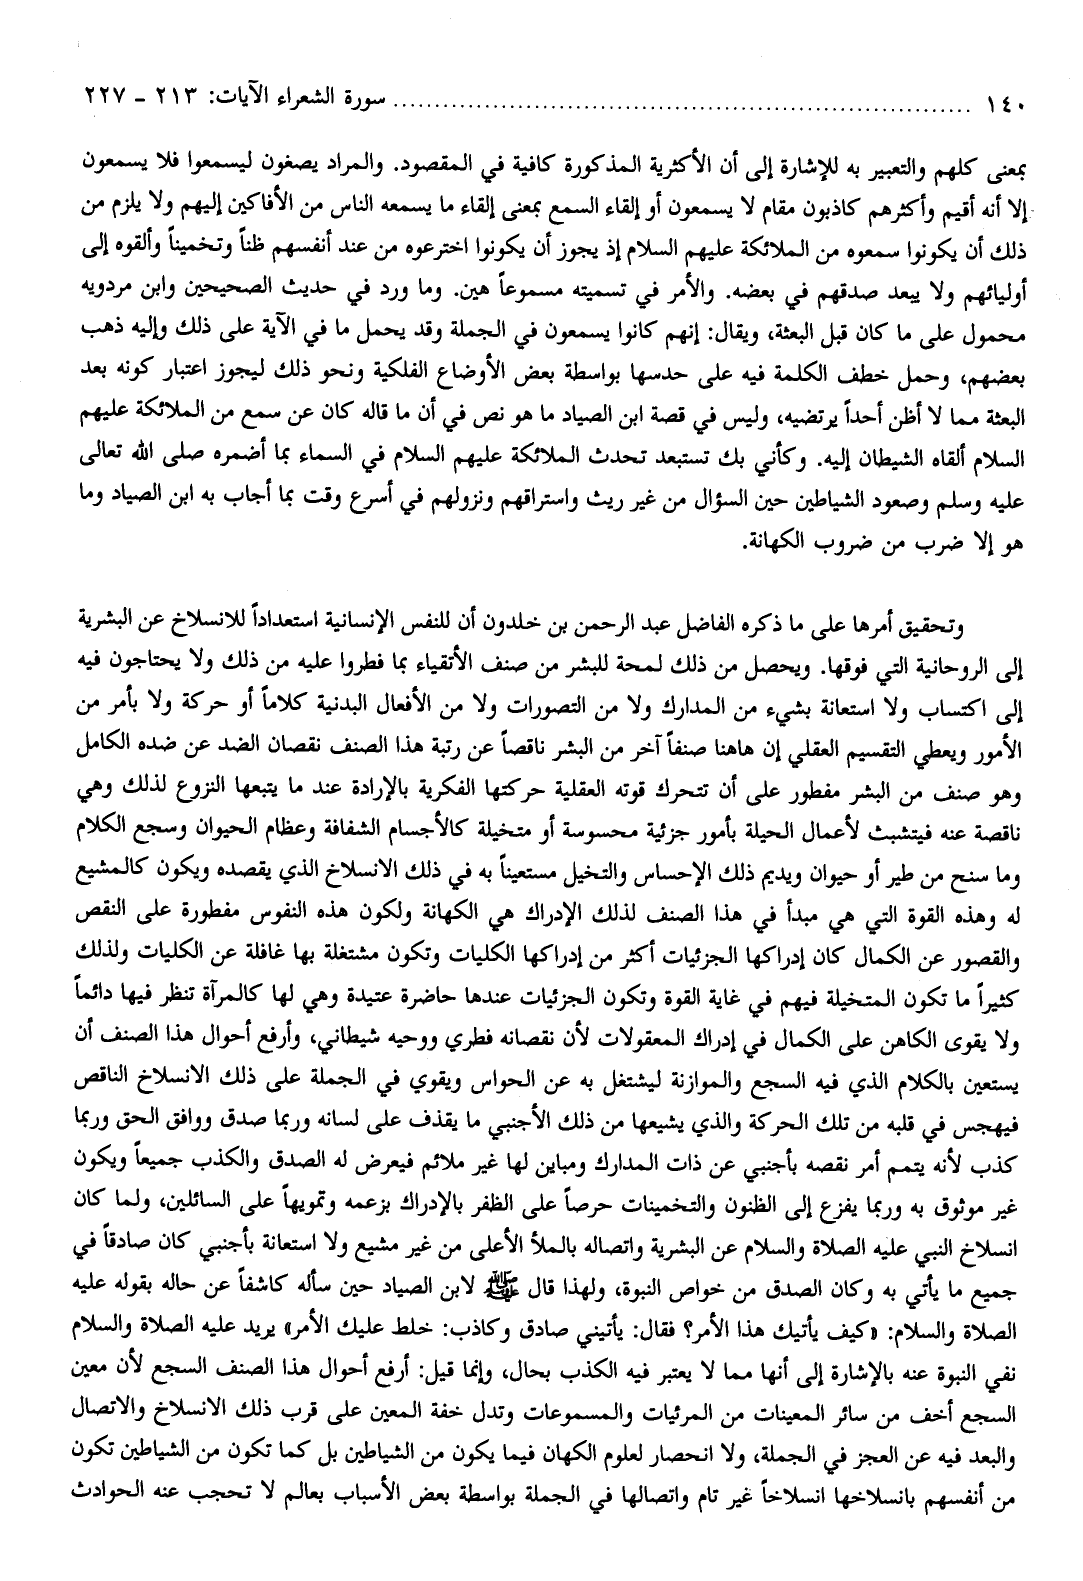 ١٤٠ ........................................................................ سورة الشعراء الآيات: ٢١٣ - ٢٢٧
بمعنى كلهم والتعبير به للإشارة إلى أن الأكثرية المذكورة كافية في المقصود. والمراد يصغون ليسمعوا فلا يسمعون
إلا أنه أقيم وأكثرهم كاذبون مقام لا يسمعون أو إلقاء السمع بمعنى إلقاء ما يسمعه الناس من الأفاكين إليهم ولا يلزم من
ذلك أن يكونوا سمعوه من الملائكة عليهم السلام إذ يجوز أن يكونوا اخترعوه من عند أنفسهم ظناً وتخميناً وألقوه إلى
أوليائهم ولا يبعد صدقهم في بعضه. والأمر في تسميته مسموعاً هين. وما ورد في حديث الصحيحين وابن مردويه
محمول على ما كان قبل البعثة، ويقال: إنهم كانوا يسمعون في الجملة وقد يحمل ما في الآية على ذلك وإليه ذهب
بعضهم، وحمل خطف الكلمة فيه على حدسها بواسطة بعض الأوضاع الفلكية ونحو ذلك ليجوز اعتبار كونه بعد
البعثة مما لا أظن أحداً يرتضيه، وليس في قصة ابن الصياد ما هو نص في أن ما قاله كان عن سمع من الملائكة عليهم
السلام ألقاه الشيطان إليه. وكأني بك تستبعد تحدث الملائكة عليهم السلام في السماء بما أضمره صلى الله تعالى
عليه وسلم وصعود الشياطين حين السؤال من غير ريث واستراقهم ونزولهم في أسرع وقت بما أجاب به ابن الصياد وما
هو إلا ضرب من ضروب الكهانة.
وتحقيق أمرها على ما ذكره الفاضل عبد الرحمن بن خلدون أن للنفس الإنسانية استعداداً للانسلاخ عن البشرية
إلى الروحانية التي فوقها. ويحصل من ذلك لمحة للبشر من صنف الأتقياء بما فطروا عليه من ذلك ولا يحتاجون فيه
إلى اكتساب ولا استعانة بشيء من المدارك ولا من التصورات ولا من الأفعال البدنية كلاماً أو حركة ولا بأمر من
الأمور ويعطي التقسيم العقلي إن هاهنا صنفاً آخر من البشر ناقصاً عن رتبة هذا الصنف نقصان الضد عن ضده الكامل
وهو صنف من البشر مفطور على أن تتحرك قوته العقلية حركتها الفكرية بالإرادة عند ما يتبعها النزوع لذلك وهي
ناقصة عنه فيتشبث لأعمال الحيلة بأمور جزئية محسوسة أو متخيلة كالأجسام الشفافة وعظام الحيوان وسجع الكلام
وما سنح من طير أو حيوان ويديم ذلك الإحساس والتخيل مستعيناً به في ذلك الانسلاخ الذي يقصده ويكون كالمشيع
له وهذه القوة التي هي مبدأ في هذا الصنف لذلك الإدراك هي الكهانة ولكون هذه النفوس مفطورة على النقص
والقصور عن الكمال كان إدراكها الجزئيات أكثر من إدراكها الكليات وتكون مشتغلة بها غافلة عن الكليات ولذلك
كثيراً ما تكون المتخيلة فيهم في غاية القوة وتكون الجزئيات عندها حاضرة عتيدة وهي لها كالمرآة تنظر فيها دائماً
ولا يقوى الكاهن على الكمال في إدراك المعقولات لأن نقصانه فطري ووحيه شيطاني، وأرفع أحوال هذا الصنف أن
يستعين بالكلام الذي فيه السجع والموازنة ليشتغل به عن الحواس ويقوي في الجملة على ذلك الانسلاخ الناقص
فيهجس في قلبه من تلك الحركة والذي يشيعها من ذلك الأجنبي ما يقذف على لسانه وربما صدق ووافق الحق وربما
كذب لأنه يتمم أمر نقصه بأجنبي عن ذات المدارك ومباين لها غير ملائم فيعرض له الصدق والكذب جميعاً ويكون
غير موثوق به وربما يفزع إلى الظنون والتخمينات حرصاً على الظفر بالإدراك بزعمه وتمويهاً على السائلين، ولما كان
انسلاخ النبي عليه الصلاة والسلام عن البشرية واتصاله بالملأ الأعلى من غير مشيع ولا استعانة بأجنبي كان صادقاً في
جميع ما يأتي به وكان الصدق من خواص النبوة، ولهذا قال ﷺ لابن الصياد حين سأله كاشفاً عن حاله بقوله عليه
الصلاة والسلام: «كيف يأتيك هذا الأمر؟ فقال: يأتيني صادق وكاذب: خلط عليك الأمر» يريد عليه الصلاة والسلام
نفي النبوة عنه بالإشارة إلى أنها مما لا يعتبر فيه الكذب بحال، وإنما قيل: أرفع أحوال هذا الصنف السجع لأن معين
السجع أخف من سائر المعينات من المرئيات والمسموعات وتدل خفة المعين على قرب ذلك الانسلاخ والاتصال
والبعد فيه عن العجز في الجملة، ولا انحصار لعلوم الكهان فيما يكون من الشياطين بل كما تكون من الشياطين تكون
من أنفسهم بانسلاخها انسلاخاً غير تام واتصالها في الجملة بواسطة بعض الأسباب بعالم لا تحجب عنه الحوادث